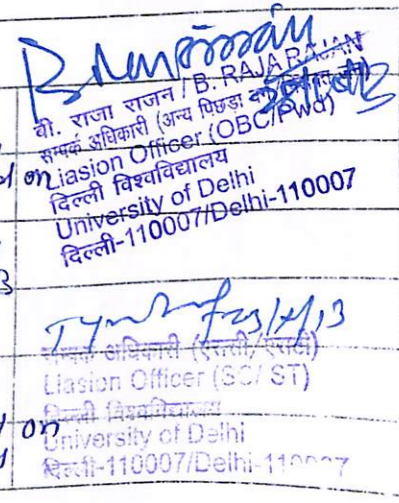 वी. राजा राजन / B. RAJA RAJAN
सम्पर्क अधिकारी (अन्य पिछड़ा
on Liasion Officer (OBC/Pwd)
दिल्ली विश्वविद्यालय
University of Delhi
दिल्ली-110007/Delhi-110007
3
23/4/13
सम्पर्क अधिकारी (एससी/एसटी)
Liasion Officer (SC/ ST)
दिल्ली विश्वविद्यालय
on University of Delhi
दिल्ली-110007/Delhi-110007